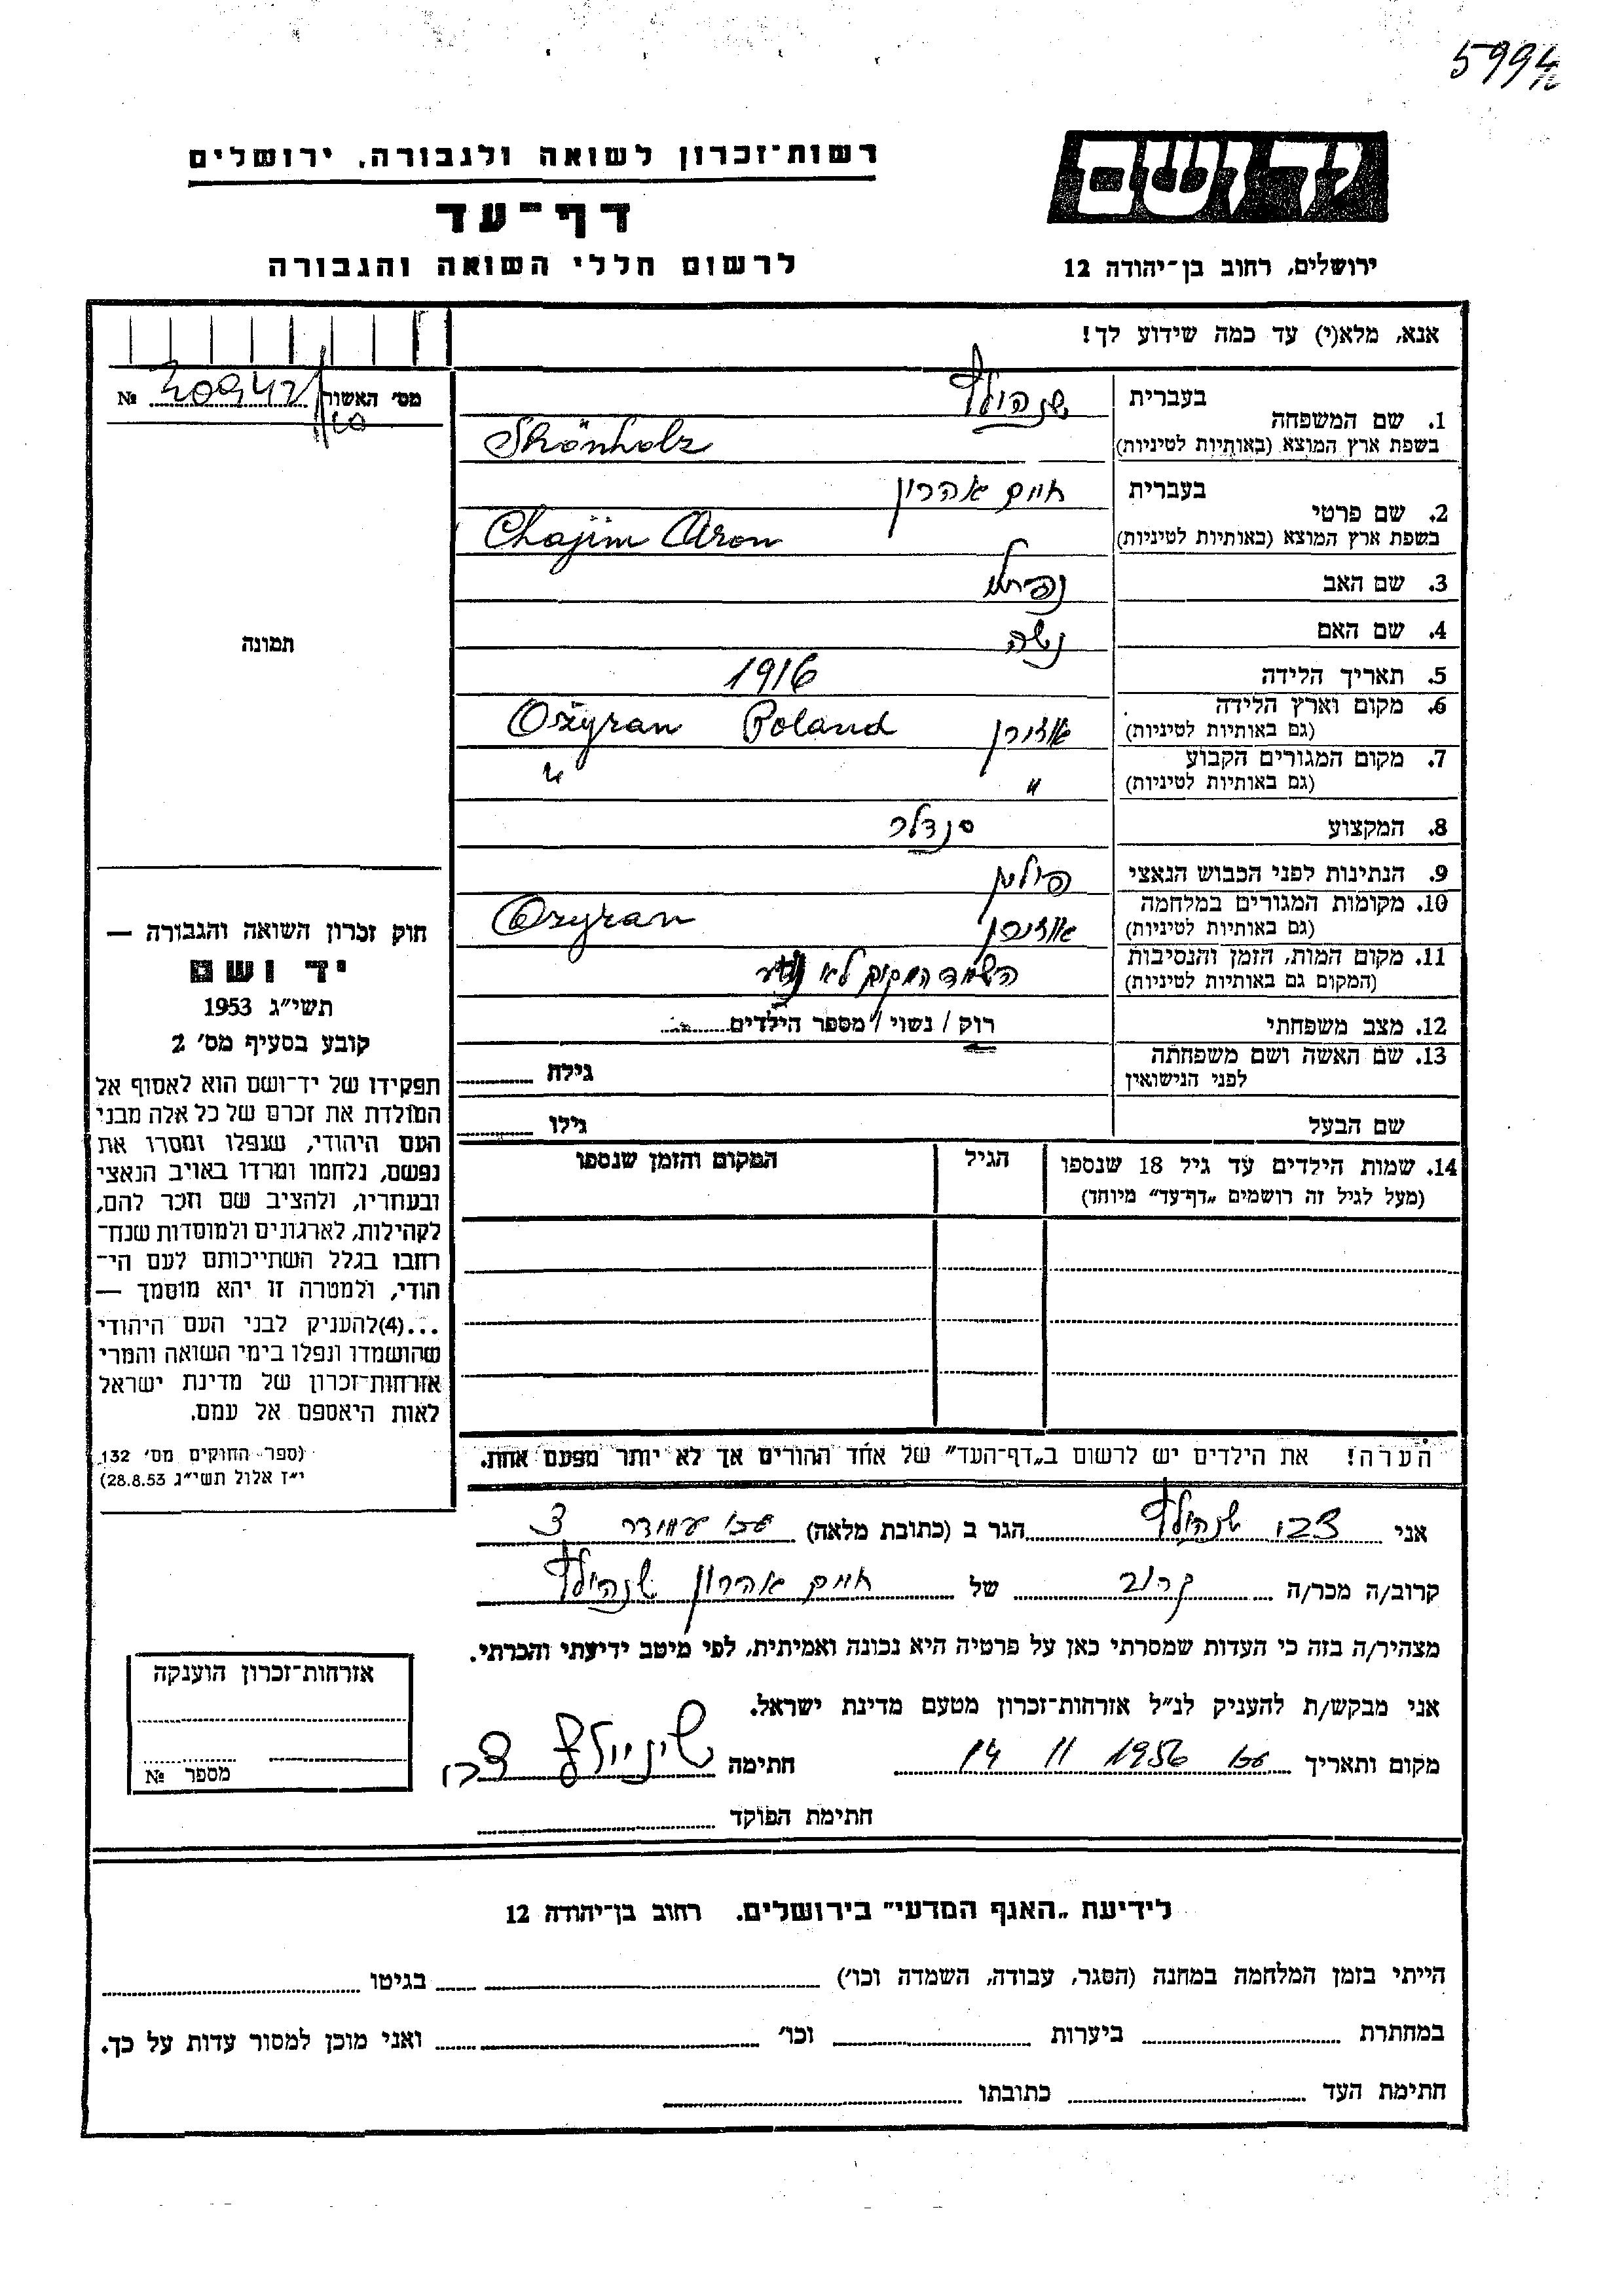 5994
רשות־זכרון לשואה ולגבורה, ירושלים
יד ושם
דף־עד
לרשום חללי השואה והגבורה
ירושלים, רחוב בן־יהודה 12
אנא, מלא(י) עד כמה שידוע לך!
מס׳ האשור № 209342
1. שם המשפחה בעברית שנהולץ
בשפת ארץ המוצא (באותיות לטיניות) Shönholz
2. שם פרטי בעברית חיים אהרון
בשפת ארץ המוצא (באותיות לטיניות) Chajim Aron
3. שם האב נפתלי
4. שם האם
תמונה
5. תאריך הלידה 1916
6. מקום וארץ הלידה
(גם באותיות לטיניות) אוזירן Ozyran Poland
7. מקום המגורים הקבוע
(גם באותיות לטיניות) " "
8. המקצוע סנדלר
9. הנתינות לפני הכבוש הנאצי פולין
10. מקומות המגורים במלחמה
(גם באותיות לטיניות) אוזירן Ozyran
11. מקום המות, הזמן והנסיבות
(המקום גם באותיות לטיניות) השמד המקום לא
12. מצב משפחתי רוק / נשוי / מספר הילדים
13. שם האשה ושם משפחתה גילה
לפני הנישואין
שם הבעל גילו
14. שמות הילדים עד גיל 18 שנספו הגיל המקום והזמן שנספו
(מעל לגיל זה רושמים „דף־עד״ מיוחד)
חוק זכרון השואה והגבורה —
יד ושם
תשי״ג 1953
קובע בסעיף מס׳ 2
תפקידו של יד־ושם הוא לאסוף אל
המולדת את זכרם של כל אלה מבני
העם היהודי, שנפלו ומסרו את
נפשם, נלחמו ומרדו באויב הנאצי
ובעוזריו, ולהציב שם וזכר להם,
לקהילות, לארגונים ולמוסדות שנח־
רבו בגלל השתייכותם לעם הי־
הודי, ולמטרה זו יהא מוסמך —
...(4)להעניק לבני העם היהודי
שהושמדו ונפלו בימי השואה והמרי
אזרחות־זכרון של מדינת ישראל
לאות היאספם אל עמם.
(ספר החוקים מס׳ 132,
י״ז אלול תשי״ג 28.8.53)
הערה! את הילדים יש לרשום ב„דף־העד״ של אחד ההורים אך לא יותר מפעם אחת.
אני צבי שנהולץ הגר ב (כתובת מלאה) 3
קרוב/ה מכר/ה קרוב של חיים אהרון שנהולץ
מצהיר/ה בזה כי העדות שמסרתי כאן על פרטיה היא נכונה ואמיתית, לפי מיטב ידיעתי והכרתי.
אני מבקש/ת להעניק לנ״ל אזרחות־זכרון מטעם מדינת ישראל.
מקום ותאריך 14 11 1956 חתימה שיינהולץ צבי
חתימת הפוקד
אזרחות־זכרון הוענקה
מספר №
לידיעת „האגף המדעי״ בירושלים. רחוב בן־יהודה 12
הייתי בזמן המלחמה במחנה (הסגר, עבודה, השמדה וכו׳) בגיטו
במחתרת ביערות וכו׳ ואני מוכן למסור עדות על כך.
חתימת העד כתובתו